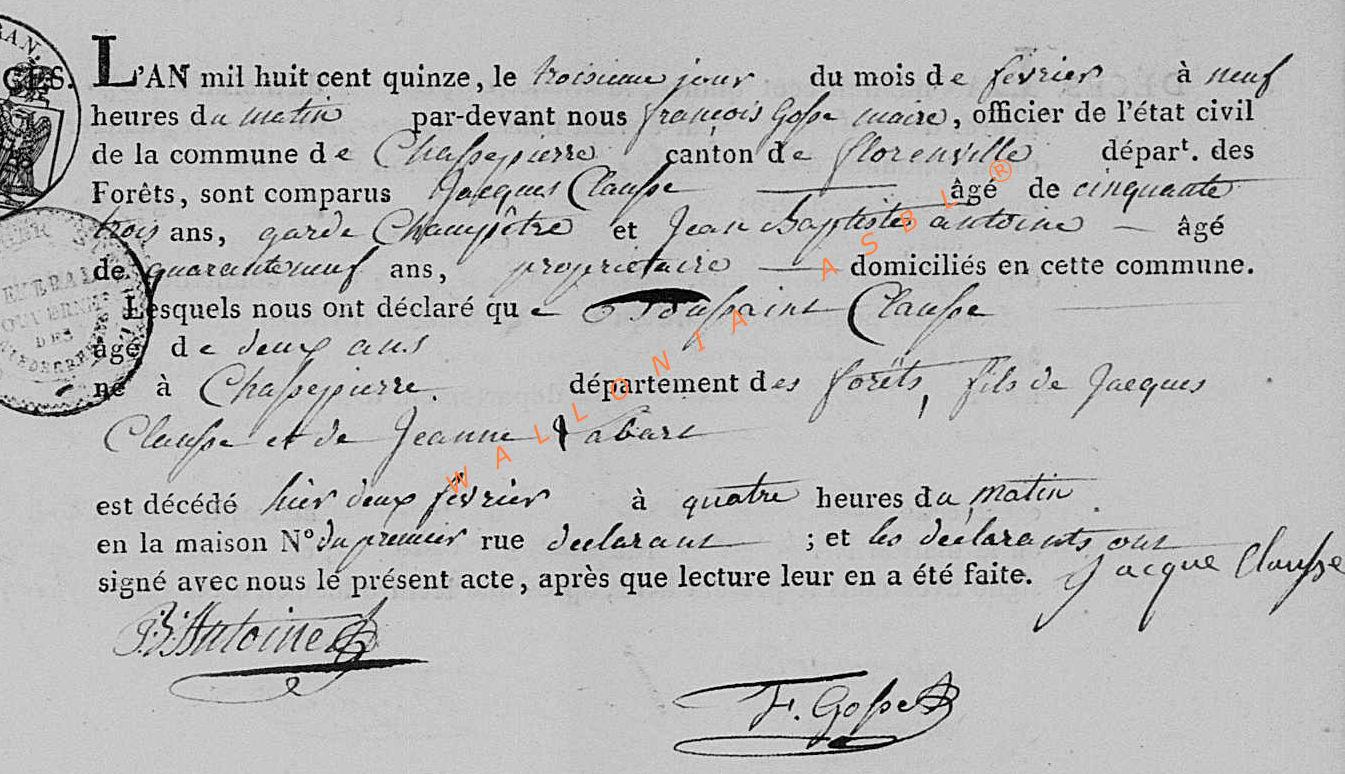 L'AN mil huit cent quinze, le troisieme jour du mois de fevrier à neuf
heures du matin par-devant nous françois Gosse maire, officier de l'état civil
de la commune de Chassepierre canton de florenville départ. des
Forêts, sont comparus Jacques Clausse âgé de cinquante
trois ans, garde Champêtre et Jean Baptiste antoine âgé
de quaranteneuf ans, proprietaire domiciliés en cette commune.
Lesquels nous ont déclaré que Toussaint Clausse
âgé de deux ans
né à Chassepierre. département des forêts, fils de Jacques
Clausse et de Jeanne Labart
est décédé hier deux février à quatre heures du matin
en la maison N° du premier rue declarant ; et les déclarants ont
signé avec nous le présent acte, après que lecture leur en a été faite. Jacque Clausse
J.B. Antoine
F. Gosse
WALLONIA ASBL ®